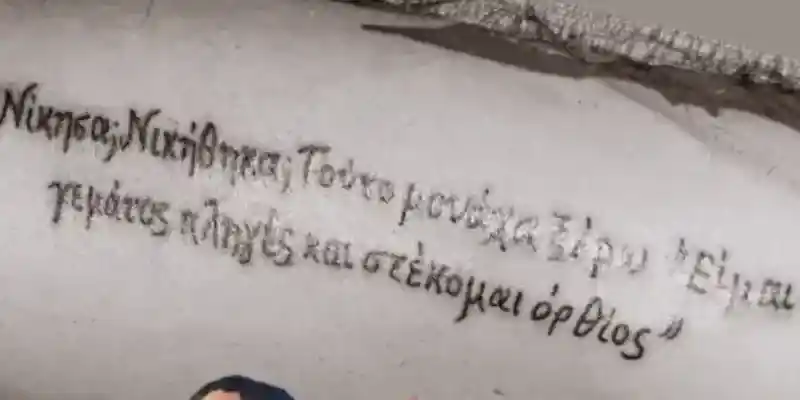 Νίκησα; Νικήθηκα; Τούτο μονάχα ξέρω "Είμαι
γεμάτος πληγές και στέκομαι όρθιος"